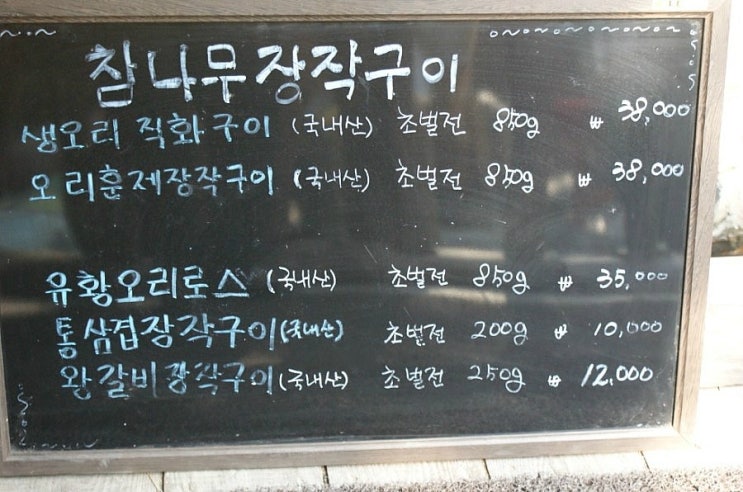 참나무장작구이
생오리 직화구이 (국내산) 초벌전 850g ₩ 38,000
오리훈제장작구이 (국내산) 초벌전 850g ₩ 38,000
유황오리로스 (국내산) 초벌전 850g ₩ 35,000
통삼겹장작구이 (국내산) 초벌전 200g ₩ 10,000
왕갈비장작구이 (국내산) 초벌전 250g ₩ 12,000